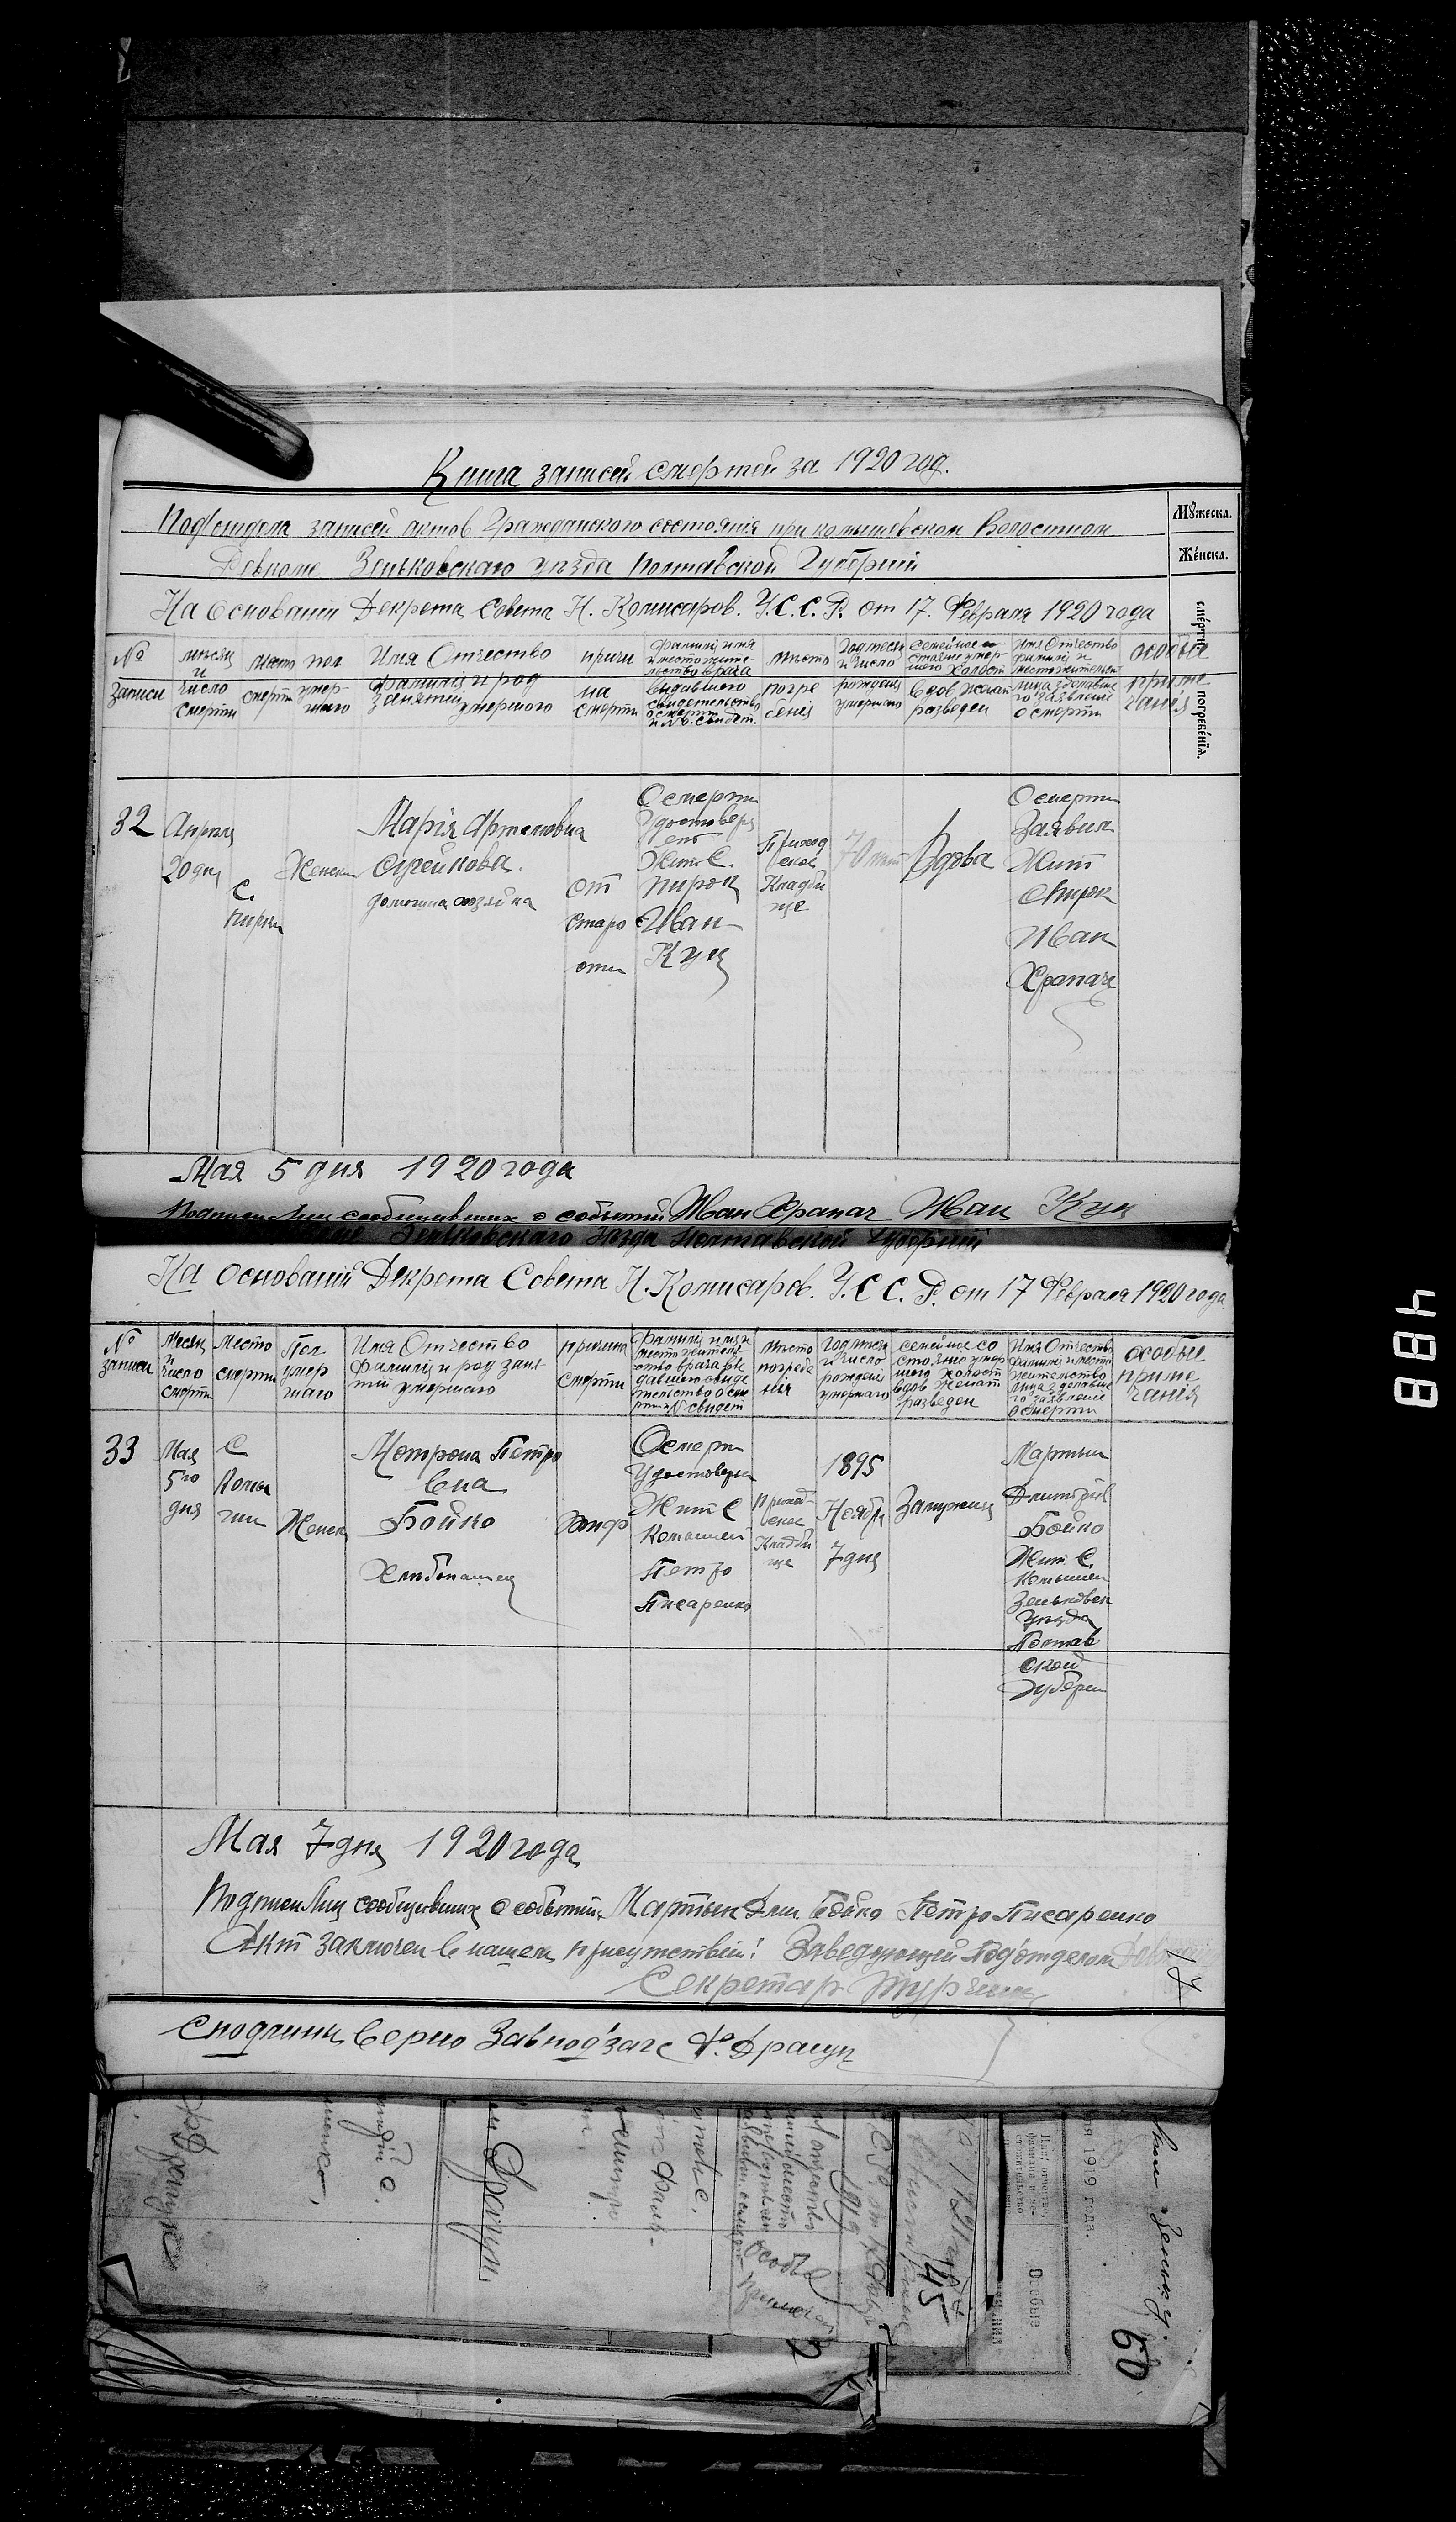 Книга записей смертей за 1920 год.
Подотдела записей актов Гражданского состоянія при комышевском Волостном
Ревкоме Зеньковскаго уѣзда Полтавской Губерніи
На Основаніи Декрета Совета Н. Комисаров. У.С.С.Р. от 17. Февраля 1920 года
Мꙋжеска.
Же́нска.
сме́рти
погребе́нїѧ.
№ Записи
мѣсяц и число смерти
место смерти
пол умер-шаго
Имя Отчество фамилія и род занятій умершого
причи на смерти
фамилія имя и место жите-льство врача выдавшего свидетельство о смерти и № свидет.
мѣсто погре бенія
Год месяц и число рождения умершаго
Семейное со-стояние умер-шого холост вдов женат разведен
Имя Отчество фамилия и местожительст лица зделавше го заявление о смерти
особые приме чанія
32
Апреля 20 дня
С. Пирки
Женски
Марія Артемовна
домашна хозяйка
от старо сти
О смерти Удостоверя ет Жит С. Пирок Иван Куц
Приход ское Кладби ще
70 лет
Вдова
О смерти Заявил Жит С Пирок Иван Храпач
Мая 5 дня 1920 года
Подписи Лиц сообщивших о событии Иван Храпач Иван Куц
Зеньковскаго Уезда Полтавской Губерніи
На Основаніи Декрета Совета Н. Комисаров. У.С.С.Р. от 17 Февраля 1920 года
№ записи
Месяц и число смерти
Место смерти
Пол умер шаго
Имя Отчество фамилія и род заня-тий умершаго
причина смерти
Фамилія имя и место житель-ство врача вы давшего свиде тельство о сме рти и № свидет
место погребе нія
Год месяц и число рождения умершаго
семейное со стояние умер шого холост вдов женат разведен
Имя Отчество фамилия и место жительство лица зделавше го заявление о смерти
особые приме чанія
33
Мая 5го дня
С Комы шни
Женск
Мотрона Петро вна Бойко Хлебопашец
тиф
О смерти Удостоверяет Жит С Комышней Петро Писаренко
Приход-ское Кладби ще
1895 Ноября 7 дня
Замужняя
Мартын Дмитриев Бойко Жит С. Комышней Зеньковск Уезда Полтав ской Губерни
Мая 7 дня 1920 года
Подписи Лиц сообщивших о событии Мартын Дми Бойко Петро Писаренко
Акт заключен в нашем присутствии: Заведующий Подотделом
Секретар
17
С подлинн верно Зав под'загс
488
45
60
1919 года.
Особые